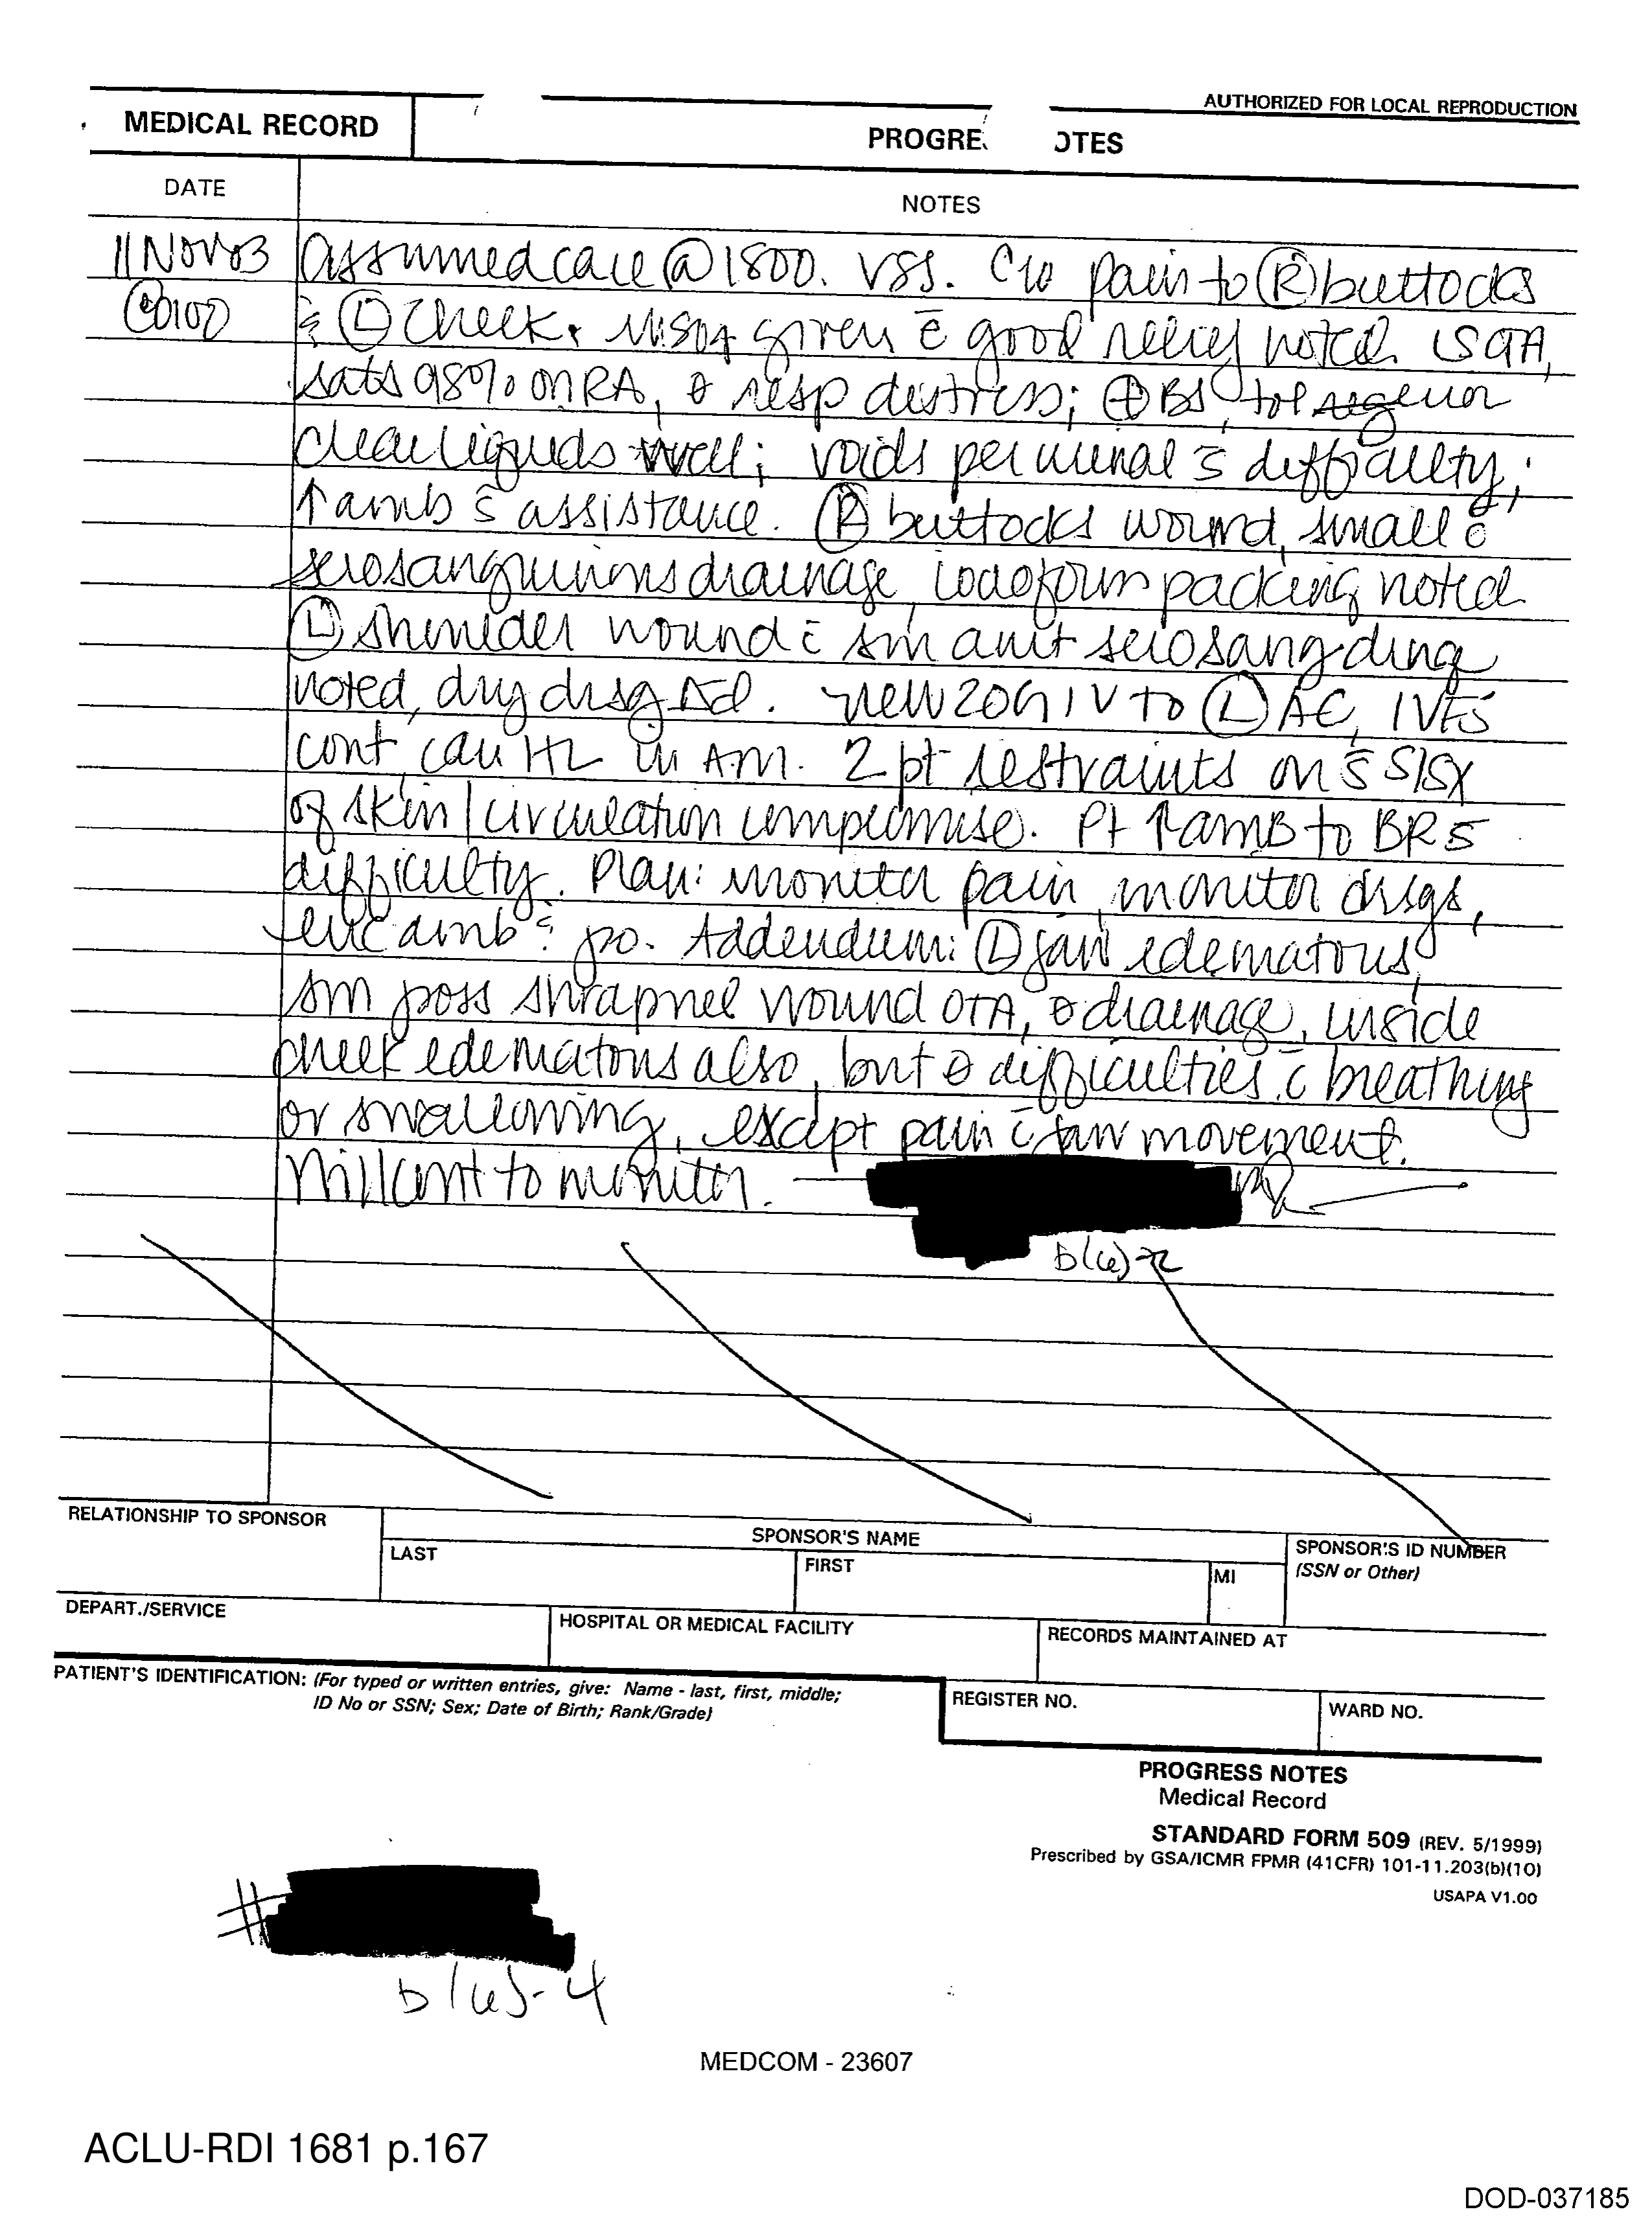 AUTHORIZED FOR LOCAL REPRODUCTION
MEDICAL RECORD
PROGRE OTES
DATE
NOTES
11Nov03 assumed care @ 1800. VSS. C/o pain to Ⓡ buttocks
@0100 & Ⓛ cheek. MSO4 given c̄ good relief noted. LSCTA,
sats 98% on RA, ⊖ resp distress; ⊕BS, tol
clear liquids well; voids per urinal s̄ difficulty;
↑amb s̄ assistance. Ⓡ buttocks wound, small c̄
serosanguinous drainage, iodoform packing noted
Ⓛ shoulder wound c̄ sm amt serosang drng
noted, dry drsg Δd. new 20G IV to Ⓛ AC, IVFs
cont, can HL in AM. 2 pt restraints on s̄ S/Sx
of skin/circulation compromise. Pt ↑amb to BR s̄
difficulty. Plan: monitor pain, monitor drsgs,
enc amb & po. Addendum: Ⓛ jaw edematous,
sm poss shrapnel wound OTA, ⊖ drainage, inside
cheek edematous also, but ⊖ difficulties c̄ breathing
or swallowing, except pain c̄ jaw movement.
Will cont to monitor.
b(6)-2
RELATIONSHIP TO SPONSOR
SPONSOR'S NAME
LAST
FIRST
MI
SPONSOR'S ID NUMBER
(SSN or Other)
DEPART./SERVICE
HOSPITAL OR MEDICAL FACILITY
RECORDS MAINTAINED AT
PATIENT'S IDENTIFICATION: (For typed or written entries, give: Name - last, first, middle;
ID No or SSN; Sex; Date of Birth; Rank/Grade)
REGISTER NO.
WARD NO.
PROGRESS NOTES
Medical Record
STANDARD FORM 509 (REV. 5/1999)
Prescribed by GSA/ICMR FPMR (41CFR) 101-11.203(b)(10)
USAPA V1.00
#
b(6)-4
MEDCOM - 23607
ACLU-RDI 1681 p.167
DOD-037185